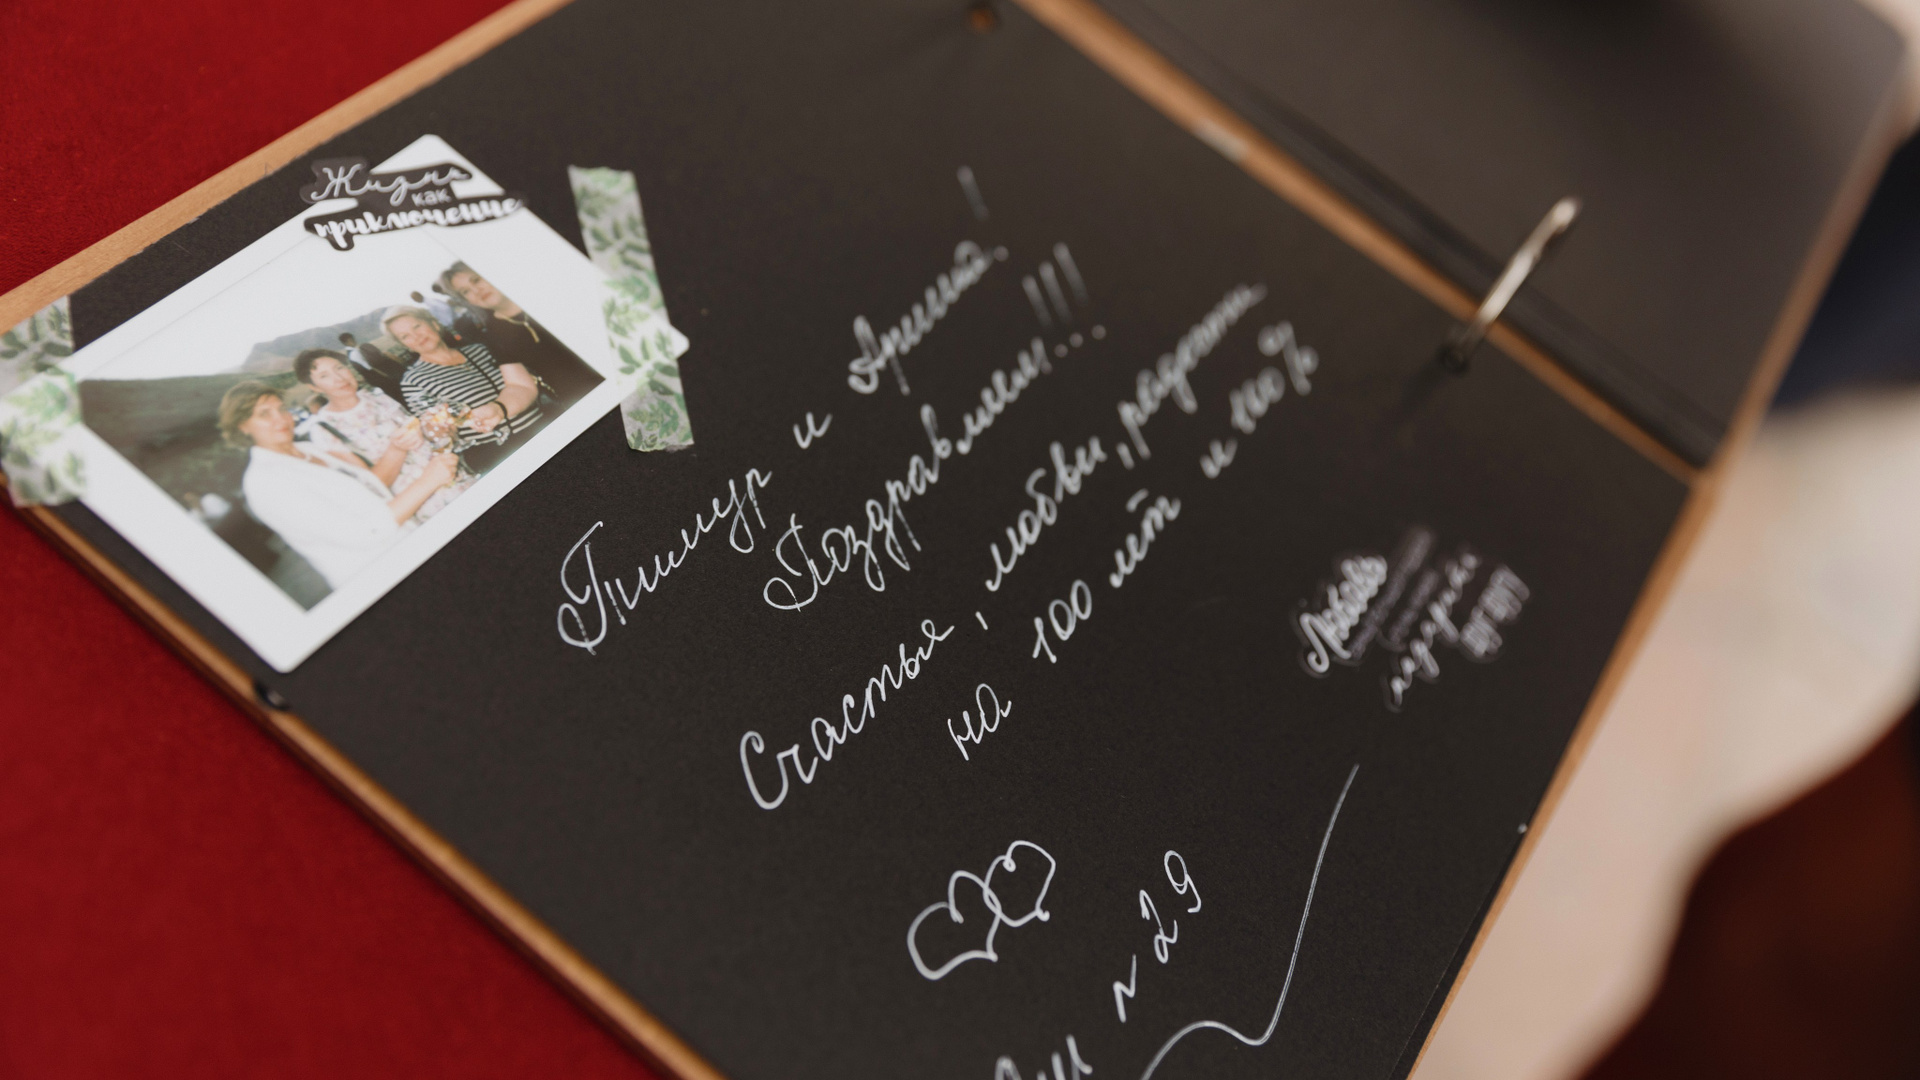 Жизнь
как
приключение
Тимур и Арина!
Поздравляем!...!!!
Счастья, любви, радости
на 100 лет и 100%
Любовь
29